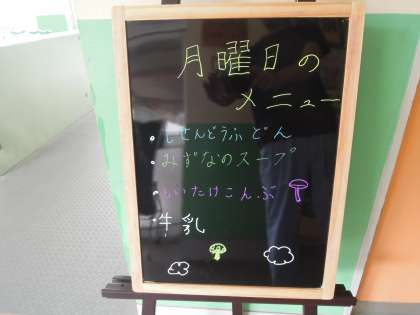 月曜日の
メニュー
・しせんどうふどん
・みずなのスープ
・しいたけこんぶ
・牛乳